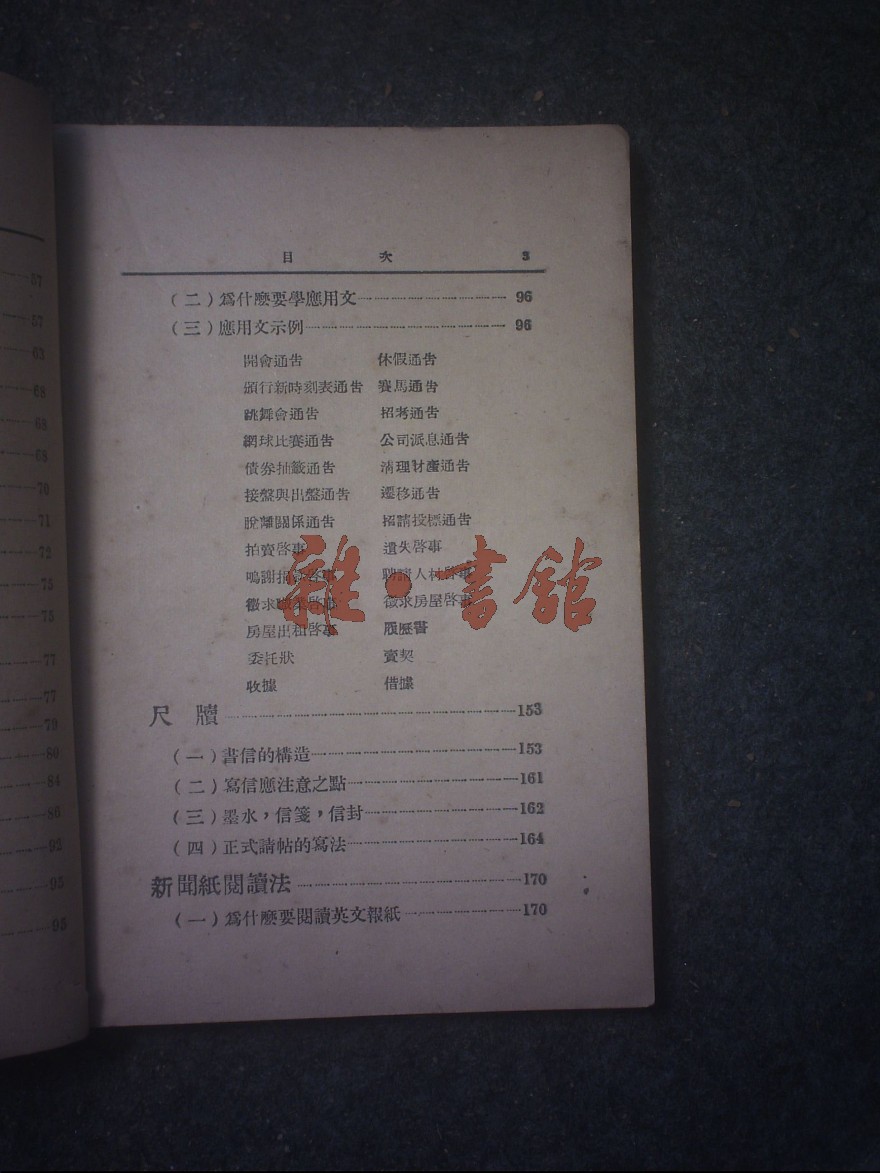 57
57
63
68
68
68
70
71
72
75
75
77
77
79
80
84
86
92
95
95
目 次 3
(二)爲什麼要學應用文 96
(三)應用文示例 96
開會通告 休假通告
頒行新時刻表通告 賽馬通告
跳舞會通告 招考通告
網球比賽通告 公司派息通告
債券抽籤通告 清理財產通告
接盤與出盤通告 遷移通告
脫離關係通告 招請投標通告
拍賣啓事 遺失啓事
鳴謝 啓事 聘請人材啓事
徵求職業啓事 徵求房屋啓事
房屋出租啓事 履歷書
委託狀 賣契
收據 借據
雜·書館
尺 牘 153
(一)書信的構造 153
(二)寫信應注意之點 161
(三)墨水,信箋,信封 162
(四)正式請帖的寫法 164
新聞紙閱讀法 170
(一)爲什麼要閱讀英文報紙 170